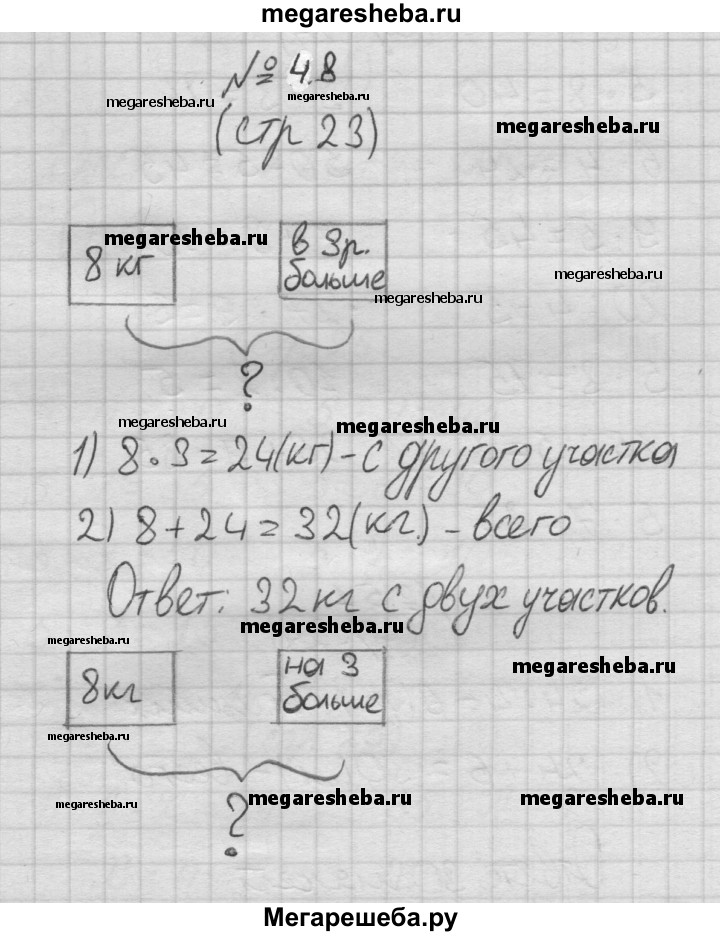 megaresheba.ru
№ 4.8
megaresheba.ru megaresheba.ru
(стр 23) megaresheba.ru
megaresheba.ru
8 кг
в 3р. больше
megaresheba.ru
megaresheba.ru
?
megaresheba.ru megaresheba.ru
1) 8 · 3 = 24(кг) - с другого участка
2) 8 + 24 = 32(кг.) - всего
Ответ: 32 кг с двух участков.
megaresheba.ru
megaresheba.ru
8кг
на 3 больше
megaresheba.ru
megaresheba.ru
?
megaresheba.ru megaresheba.ru megaresheba.ru
Мегарешеба.ру